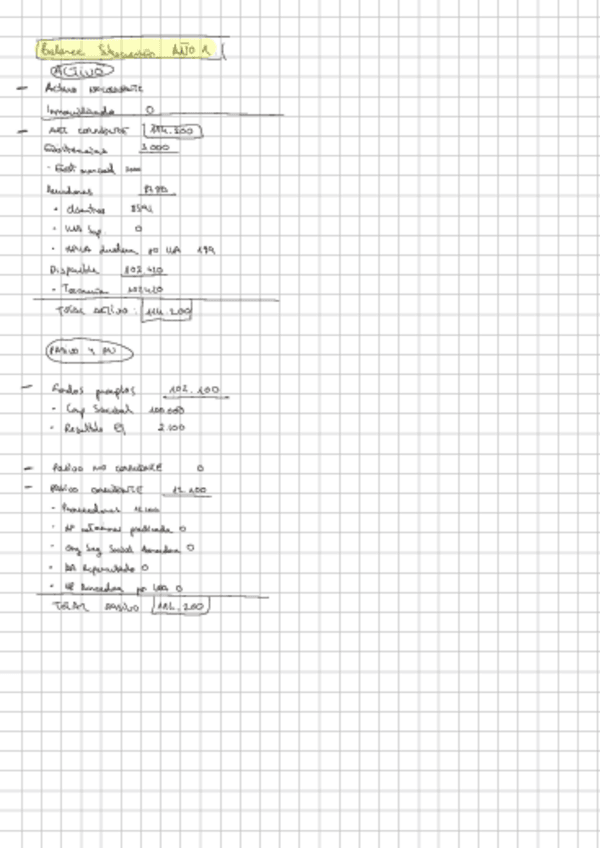 Balance Situación AÑO 1
ACTIVO
- Activo no corriente
Inmovilizado 0
- Act corriente 114.200
Existencias 3.000
· Exist mercad 3000
Deudores
· clientes 8591
· IVA Sop. 0
· deudora por IVA 199
Disponible 102.410
· Tesorería 102.410
TOTAL ACTIVO: 114.200
PASIVO Y PN
- Fondos propios 102.100
· Cap Social 100.000
· Resultado Ej 2.100
- PASIVO NO CORRIENTE 0
- PASIVO CORRIENTE 12.100
· Proveedores 12.100
· HP practicada 0
· Org Seg Social Acreedora 0
· IVA Repercutido 0
· HP Acreedora por IVA 0
TOTAL PASIVO 114.200